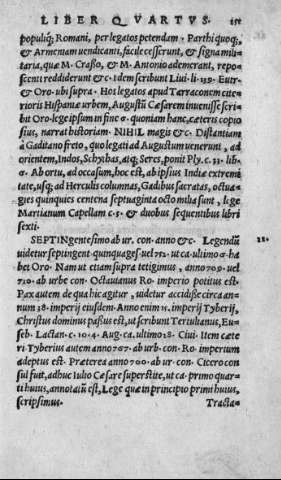 LIBER QVARTVS. 151
populiq; Romani, per legatos petendam. Parthi quoq;
& Armeniam uendicanti, facile cesserunt, & signa mili-
taria, quæ M. Crasso, & M. Antonio ademerant, repo-
scenti reddiderunt &c. Idem scribunt Liui. li. 139. Eutr-
& Oro. ubi supra. Hos legatos apud Tarraconem cite-
rioris Hispaniæ urbem, Augustũ Cæsarem inuenisse scri-
bit Oro. lege ipsum in fine σ. quoniam hanc, cæteris copio
sius, narrat historiam. NIHIL magis &c. Distantiam
à Gaditano freto, quo legati ad Augustum uenerunt, ad
orientem, Indos, Schythas, atq; Seres, ponit Ply. c. 33. lib-
σ. Ab ortu, ad occasum, hoc est, ab ipsius Indiæ extremi
tate, usq; ad Herculis columnas, Gadibus sacratas, octua-
gies quinquies centena septuaginta octo milia sunt, lege
Martianum Capellam c. 5. & duobus sequentibus libri
sexti.
SEPTINgentesimo ab ur. con. anno &c. Legendũ 28.
uidetur septingent. quinquages. uel 752. ut ca. ultimo σ. ha
bet Oro. Nam ut etiam supra tetigimus, anno 709. uel
710. ab urbe con. Octauianus Ro. imperio potitus est.
Pax autem de qua hic agitur, uidetur accidisse circa an-
num 38. imperij eiusdem. Anno enim 15. imperij Tyberij,
Christus dominus passus est, ut scribunt Tertulianus, Eu-
seb. Lactan. c. 10. 4. Aug. ca. ultimo 18. Ciui. Item cæte
ri Tyberius autem anno 767. ab urb. con. Ro. imperium
adeptus est. Præterea anno 700. ab ur. con. Cicero con
sul fuit, adhuc Iulio Cæsare superstite, ut ca. primo quar-
ti huius, annotatũ est, Lege quæ in principio primi huius,
scripsimus. Tracta-